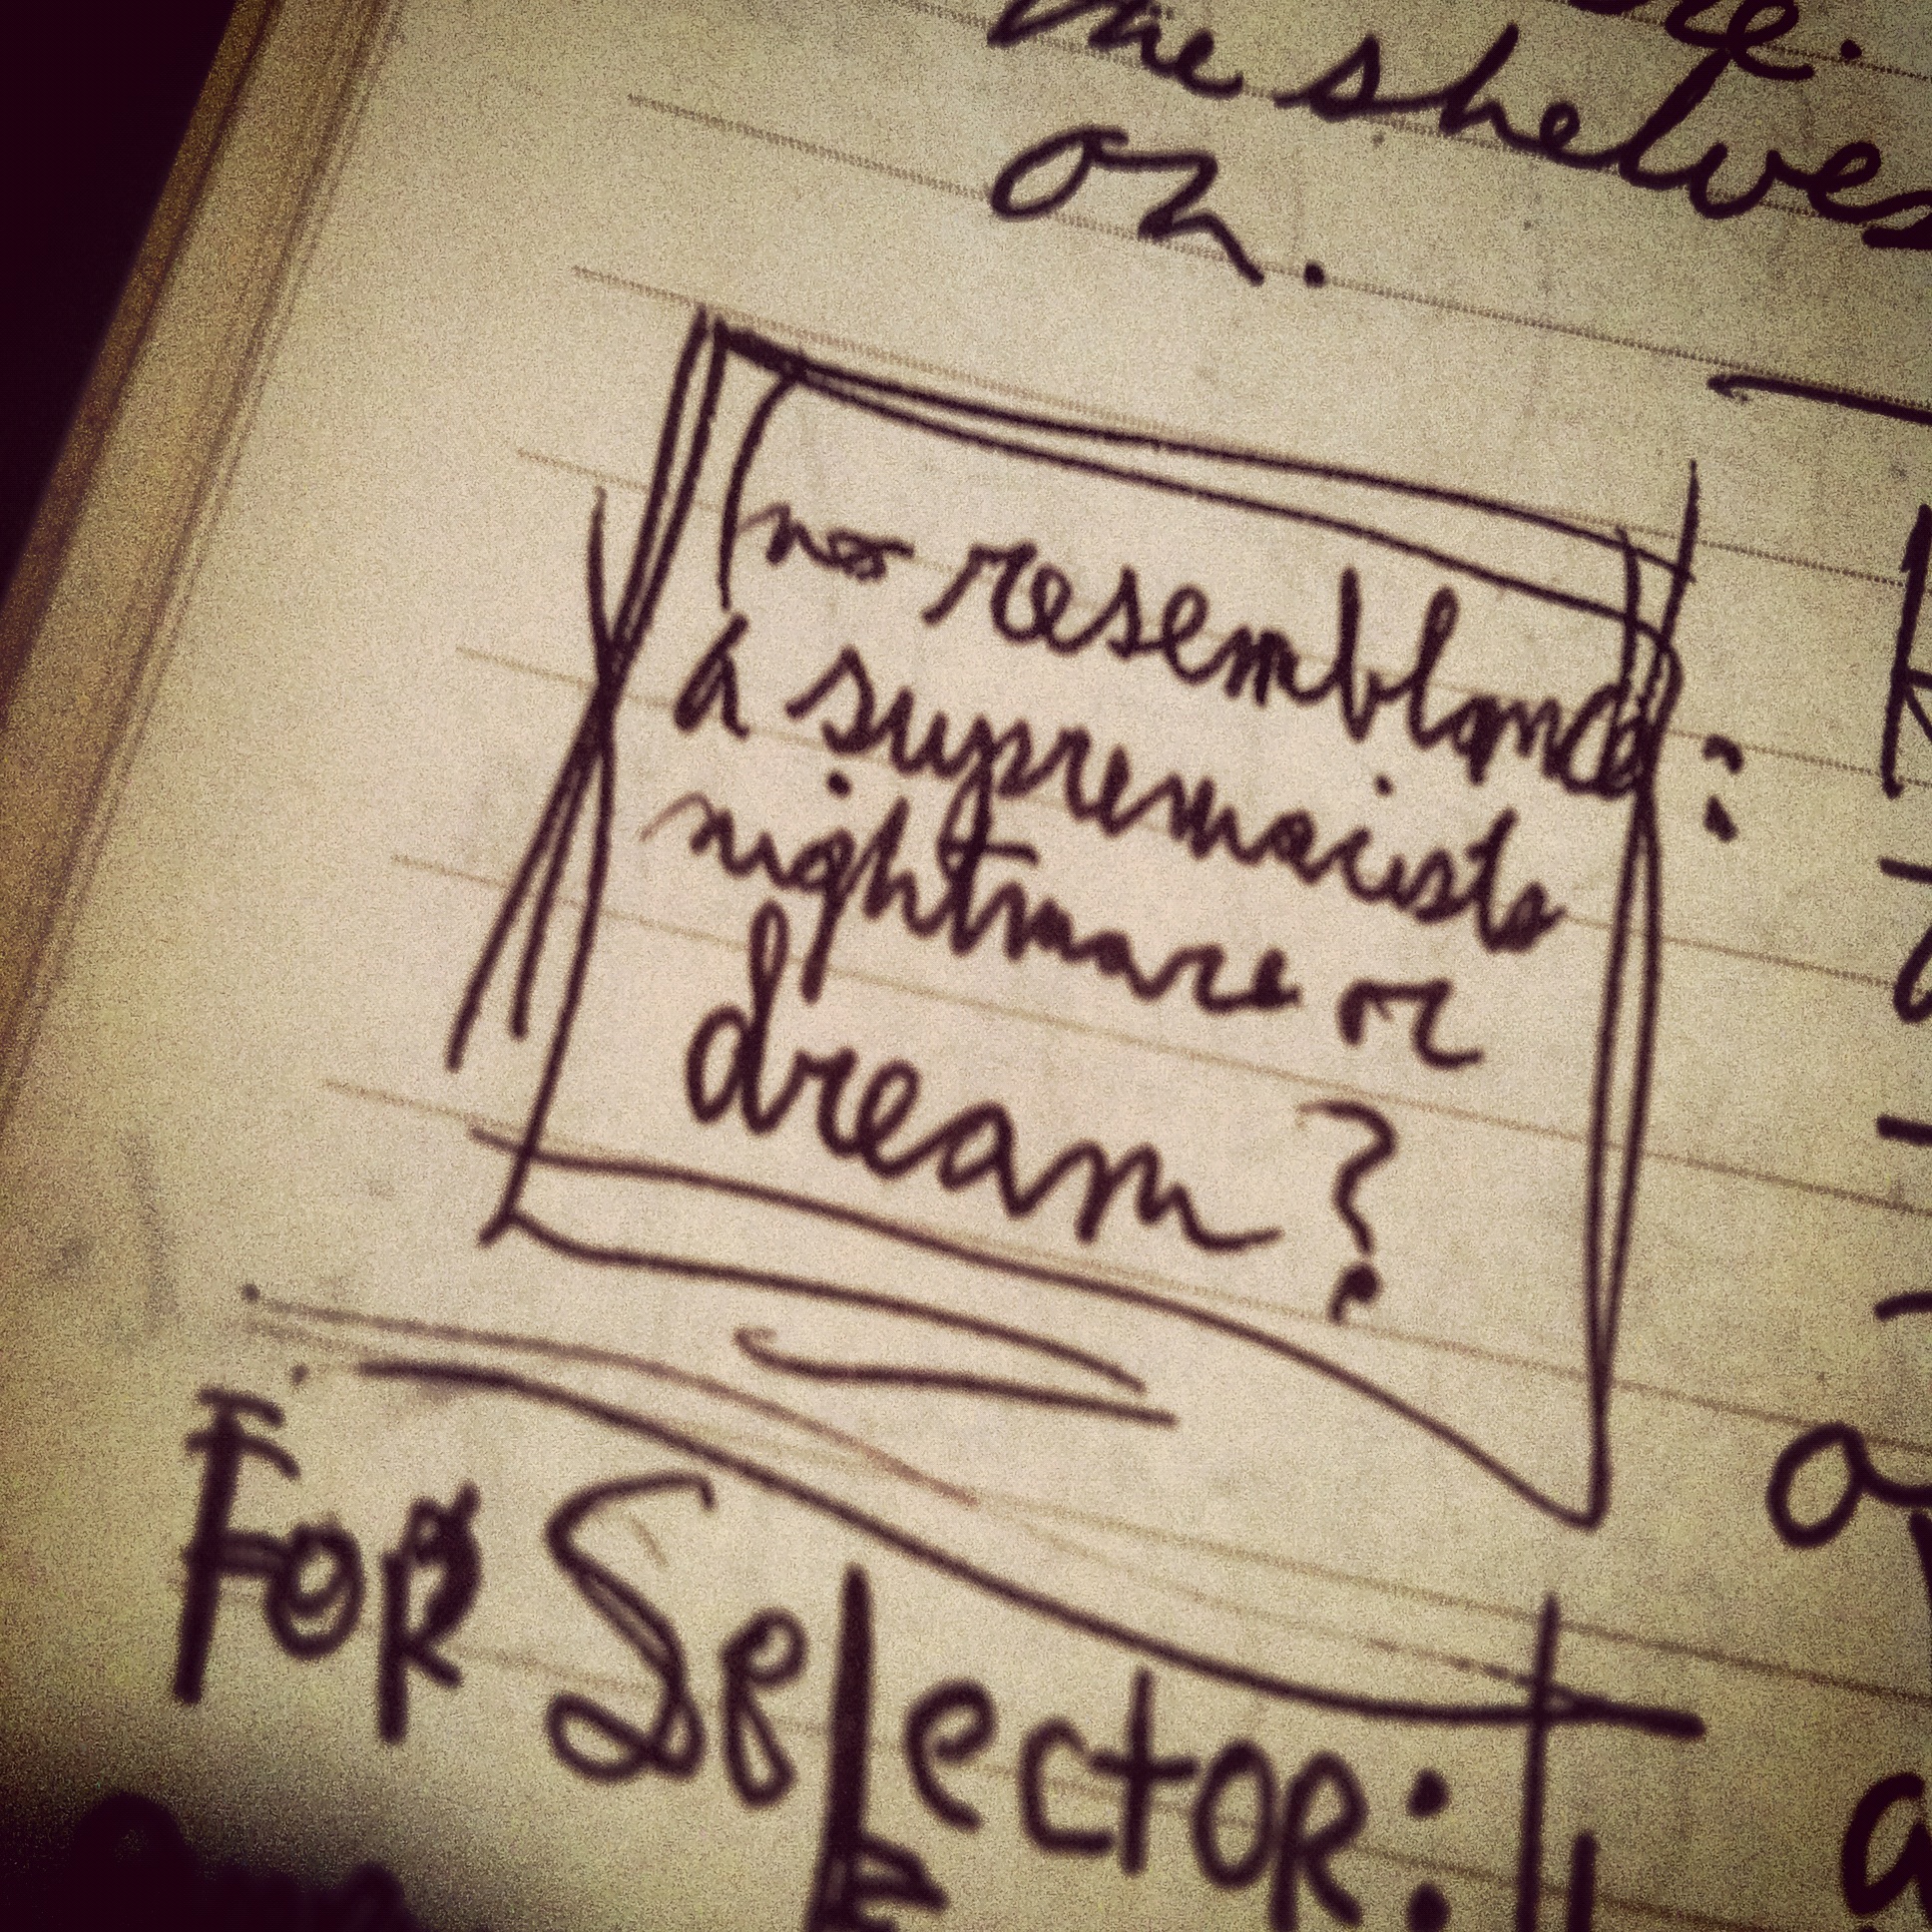 the shelves
on.
no resemblance:
a supremacists
nightmare or
dream?
For Selector: